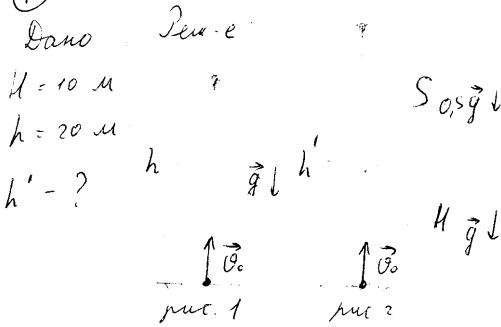 Дано Реш-е
H = 10 м
h = 20 м
h' - ?
h g⃗ h'
S 0,5g⃗
H g⃗
v⃗₀ v⃗₀
рис. 1 рис 2